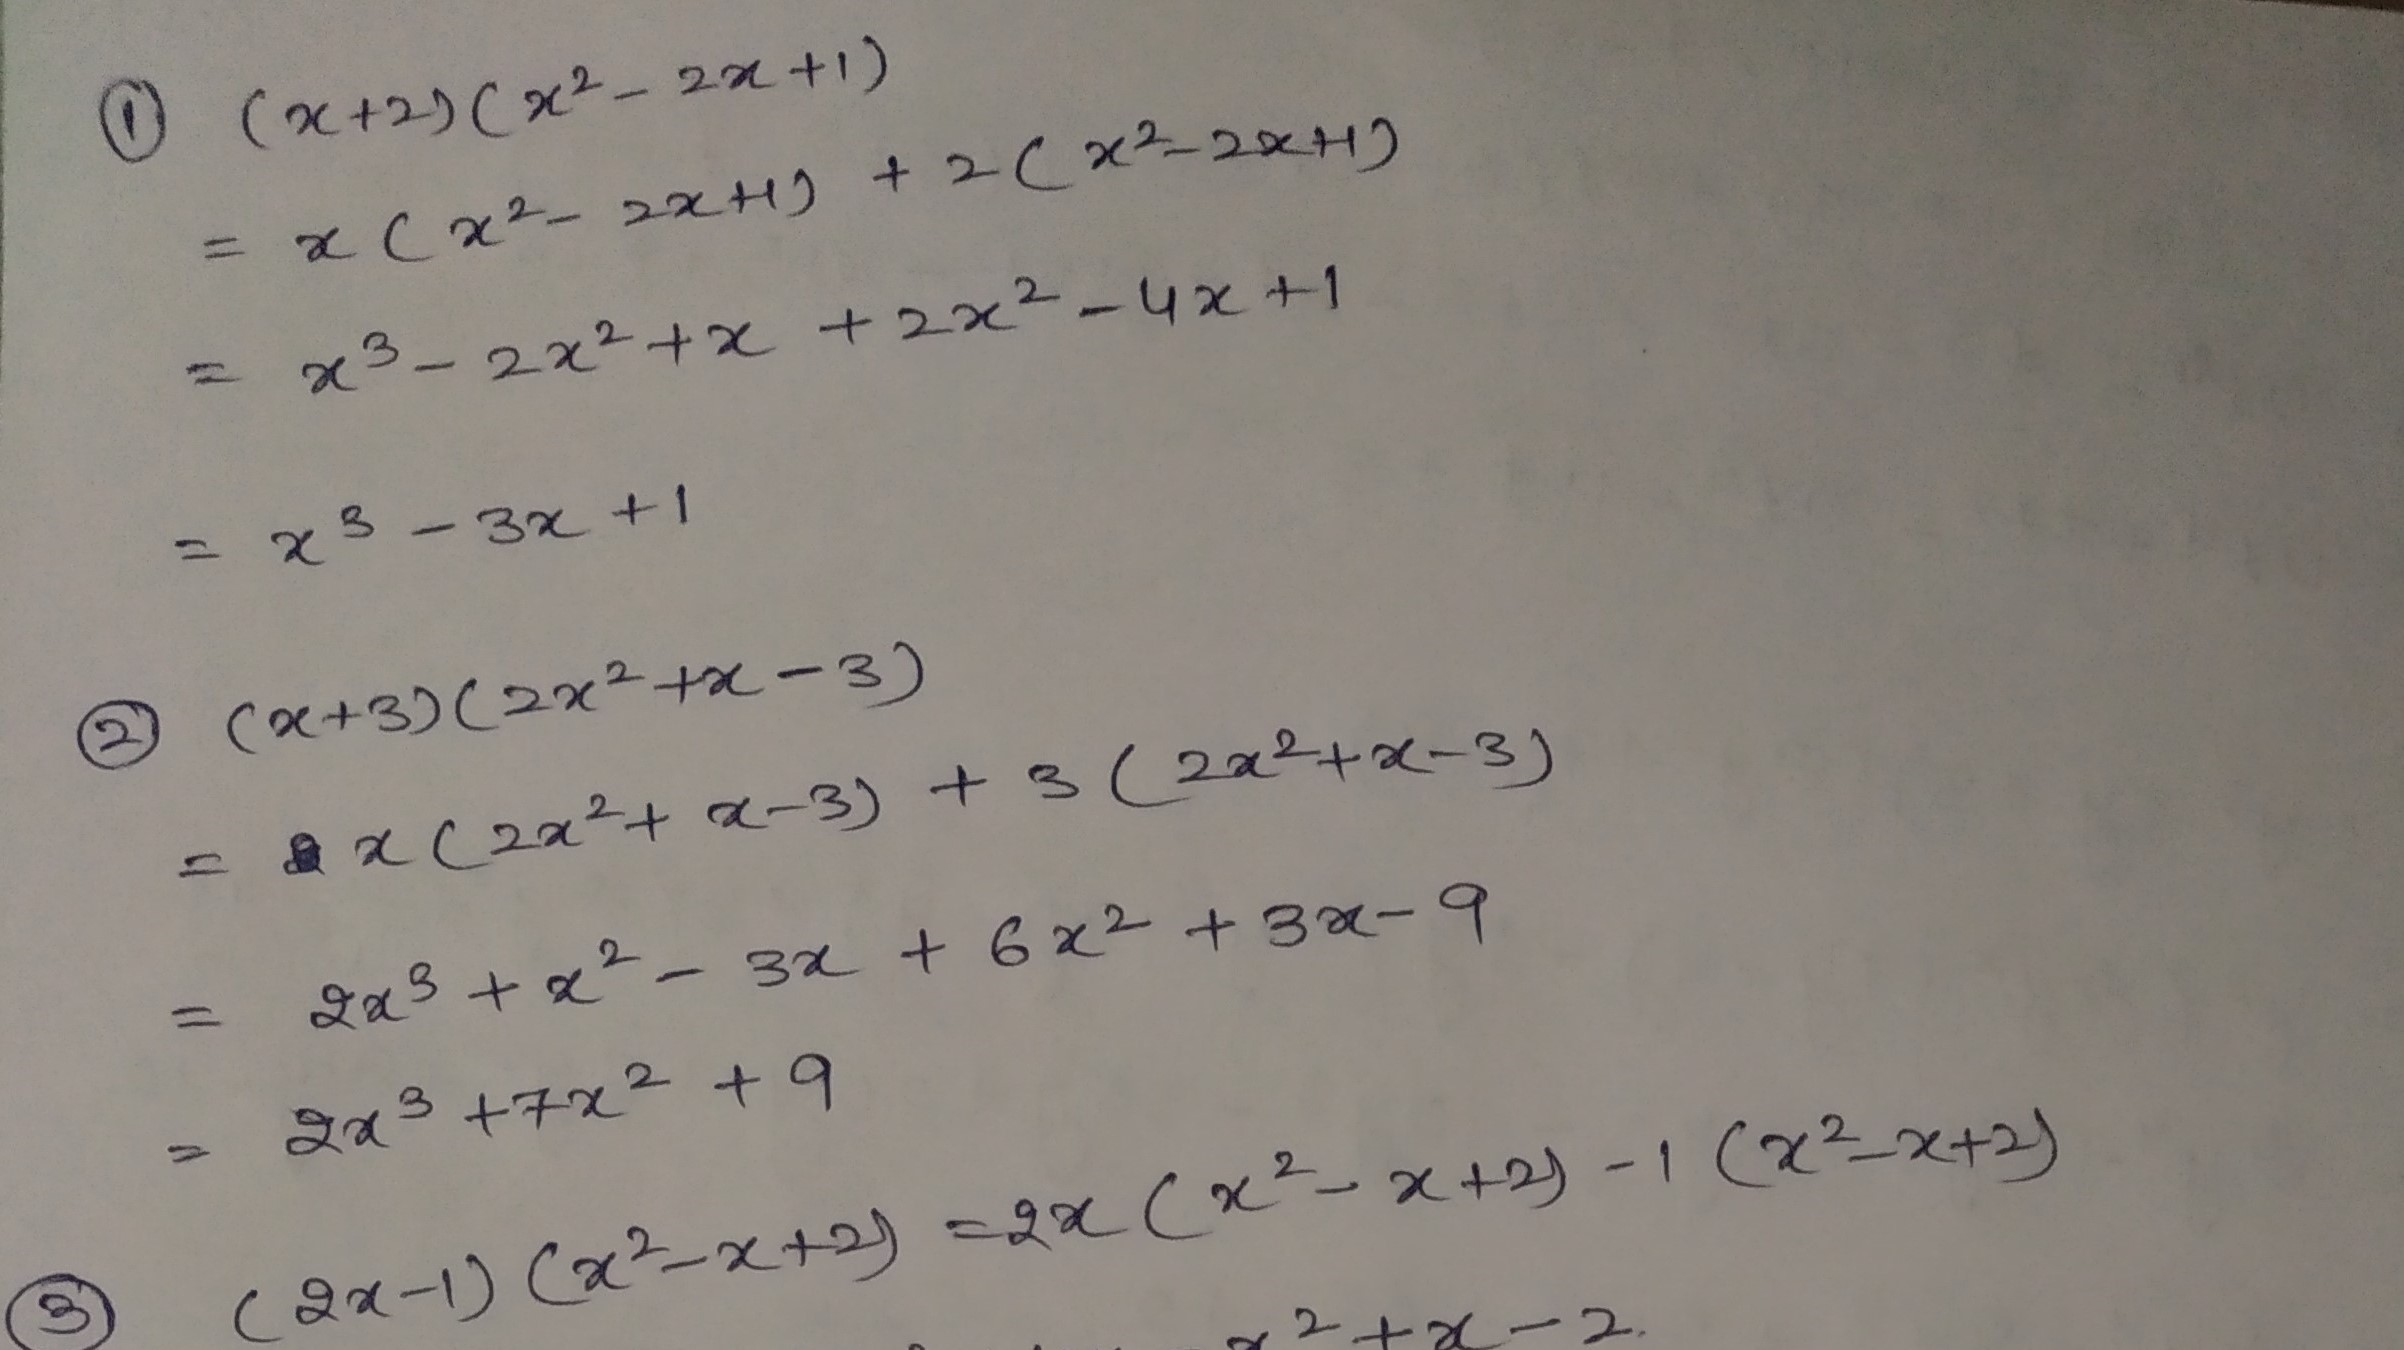 ① (x+2)(x²-2x+1)
= x(x²-2x+1) + 2(x²-2x+1)
= x³-2x²+x +2x²-4x+1
= x³-3x+1
② (x+3)(2x²+x-3)
= x(2x²+x-3) + 3(2x²+x-3)
= 2x³+x²-3x+6x²+3x-9
= 2x³+7x²+9
③ (2x-1)(x²-x+2) =2x(x²-x+2)-1(x²-x+2)
x²+x-2.